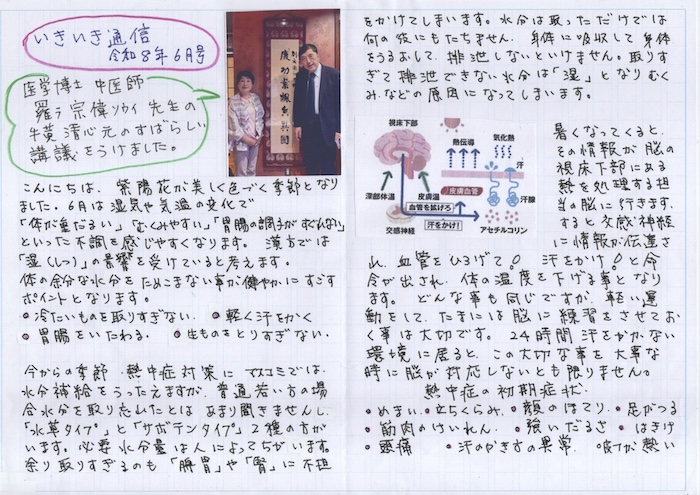 いきいき通信
令和8年6月号
医学博士 中医師
羅ラ 宗偉ソウイ 先生の
牛黄清心元のすばらしい
講議をうけました。
こんにちは、紫陽花が美しく色づく季節となり
ました。6月は湿気や気温の変化で
「体が重だるい」「むくみやすい」「胃腸の調子がすぐれない」
といった不調を感じやすくなります。漢方では
「湿(しつ)」の影響を受けていると考えます。
体の余分な水分をためこまない事が健やかにすごす
ポイントとなります。
・冷たいものを取りすぎない ・軽く汗をかく
・胃腸をいたわる ・生ものをとりすぎない
今からの季節・熱中症対策に マスコミでは、
水分補給をうったえますが、普通若い方の場
合水分を取り忘れたとは あまり聞きませんし、
「水草タイプ」と「サボテンタイプ」2種の方が
います。必要水分量は人によってちがいます。
余り取りすぎるのも「脾胃」や「腎」に不担
をかけてしまいます。水分は取っただけでは
何の役にもたちません。身体に吸収して身体
をうるおして、排泄しないといけません。取りす
ぎて排泄できない水分は「湿」となりむく
みなどの原因になってしまいます。
視床下部
熱伝導
気化熱
汗
皮膚血管
汗腺
深部体温
皮膚温
血管を拡げろ!
汗をかけ!
交感神経
アセチルコリン
暑くなってくると、
その情報が脳の
視床下部にある
熱を処理する担
当の脳に行きます。
すると交感神経
に情報が伝達さ
れ、血管をひろげて! 汗をかけ!と命
令が出され、体の温度を下げる事となり
ます。どんな事も同じですが、軽い運
動をして、たまには脳に練習をさせてお
く事は大切です。24時間汗をかかない
環境に居ると、この大切な事を大事な
時に脳が対応しないとも限りません。
熱中症の初期症状
・めまい・立ちくらみ・顔のほてり・足がつる
・筋肉のけいれん・強いだるさ・はきけ
・頭痛 ・汗のかき方の異常